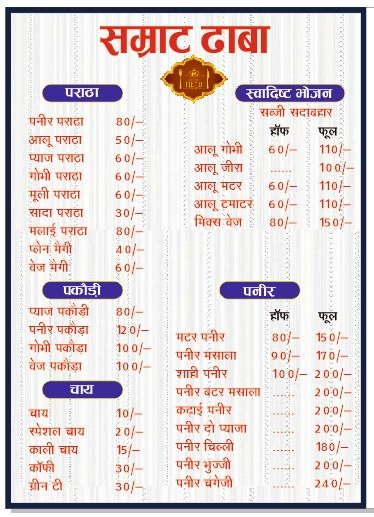 सम्राट ढाबा
पराठा
पनीर पराठा 80/–
आलू पराठा 50/–
प्याज पराठा 60/–
गोभी पराठा 60/–
मूली पराठा 60/–
सादा पराठा 30/–
मलाई पराठा 80/–
प्लेन मैगी 40/–
वेज मैगी 60/–
पकौडी़
प्याज पकौडी़ 80/–
पनीर पकौड़ा 120/–
गोभी पकौड़ा 100/–
वेज पकौड़ा 100/–
चाय
चाय 10/–
स्पेशल चाय 20/–
काली चाय 15/–
कॉफी 30/–
ग्रीन टी 30/–
स्वादिष्ट भोजन
सब्जी सदाबहार
हॉफ फूल
आलू गोभी 60/– 110/–
आलू जीरा ...... 100/–
आलू मटर 60/– 110/–
आलू टमाटर 60/– 110/–
मिक्स वेज 80/– 150/–
पनीर
हॉफ फूल
मटर पनीर 80/– 150/–
पनीर मसाला 90/– 170/–
शाही पनीर 100/– 200/–
पनीर बटर मसाला ...... 200/–
कढाई पनीर ...... 200/–
पनीर दो प्याजा ...... 200/–
पनीर चिल्ली ...... 180/–
पनीर भुज्जी ...... 200/–
पनीर चंगेजी ...... 240/–